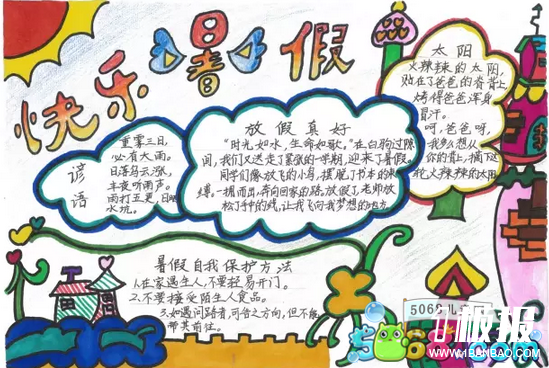 快乐暑假
谚语
重雾三日，
必有大雨。
日落乌云涨，
半夜听雨声。
雨打五更，日晒
水坑。
放假真好
“时光如水，生命如歌。”在白驹过隙
间，我们又送走了紧张的一学期，迎来了暑假。
同学们像放飞的小鸟，摆脱了书本的束
缚，一拥而出，奔向回家的路，放假了，老师放
松了手中的线，让我飞向我梦想的地方
太阳
火辣辣的太阳，
贴在了爸爸的脊背上
烤得爸爸浑身
冒汗。
呀，爸爸呀，
我多么想从
你的背上，摘下这
轮火辣辣的太阳
暑假自我保护方法
1.在家遇生人，不要轻易开门。
2.不要接受陌生人食品。
3.如遇问路者，可告之方向，但不能
带其前往。
5068儿
1板报
www.1BANBAO.com